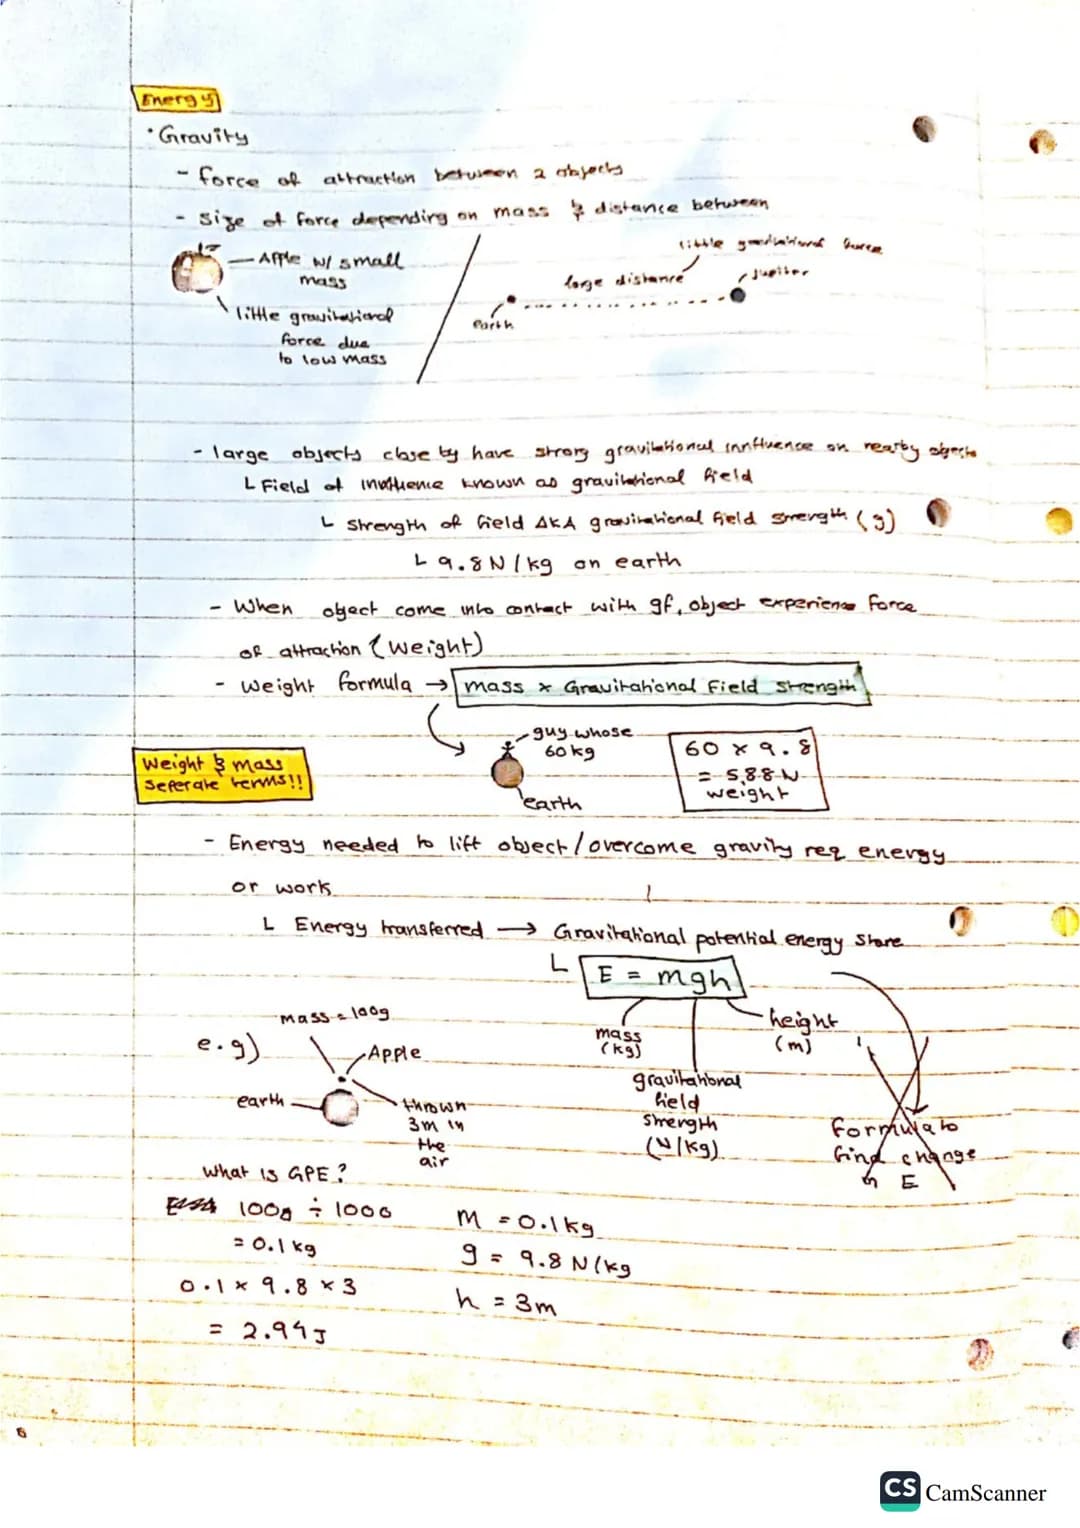 Energy
• Gravity
- force of attraction between 2 objects
- size of force depending on mass & distance between
Apple w/ small
mass
little gravitational
force due
to low mass
little gravitational force
large distance
Jupiter
earth
- large objects close by have strong gravitational innfluence on nearby objects
L Field of influence known as gravitational field
L Strength of field AKA gravitational field strength (g)
L 9.8N/kg on earth
- When object come into contact with gf, object experience force
of attraction (weight)
- Weight formula → mass x Gravitational Field Strength
guy whose
60kg
earth
60 x 9.8
= 588N
weight
Weight & mass
Seperate terms!!
- Energy needed to lift object/overcome gravity req energy
or work
L Energy transferred → Gravitational potential energy store
L E = mgh
mass
(kg)
gravitational
field
strength
(N/kg)
height
(m)
formula to
find change
in E
e.g)
mass = 100g
Apple
earth
thrown
3m in
the
air
What is GPE?
100g ÷ 1000
= 0.1kg
0.1 x 9.8 x 3
= 2.94J
m = 0.1kg
g = 9.8 N/kg
h = 3m
CS CamScanner